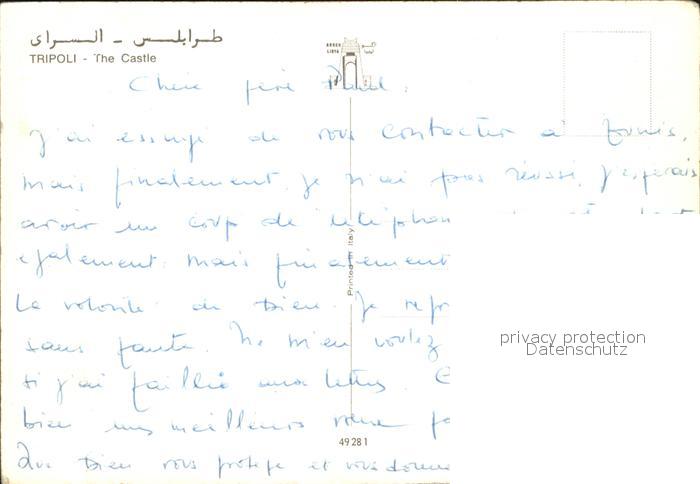 طرابلس - السراي
TRIPOLI - The Castle
Cher père Paul.
J'ai essayé de vous contacter à Tunis,
mais finalement, je n'ai pas réussi, j'espérais
avoir un coup de téléphon
également. mais finalement
la volonté de Dieu. Je
sans faute. Ne m'en voulez
si j'ai failli aux lettres.
bien mes meilleurs vœux
Que Dieu vous protège et vous donne
Printed in Italy
49281
privacy protection
Datenschutz